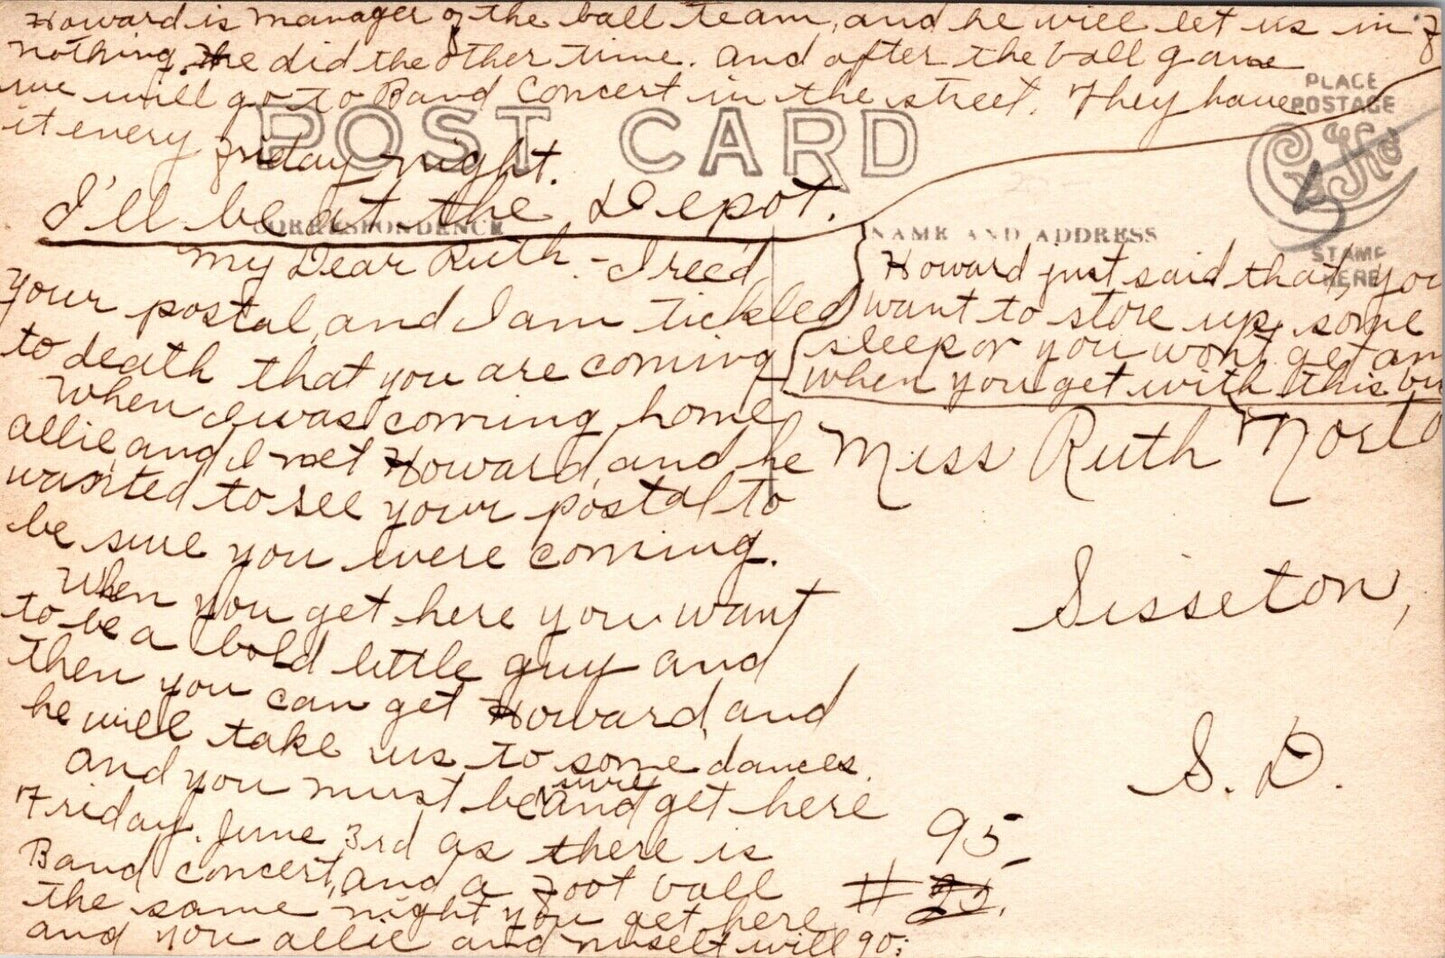 Howard is manager of the ball team, and he will let us in f
nothing. He did the other time. And after the ball game
we will go to Band Concert in the street. They have
it every Friday night.
I'll be at the Depot.
POST CARD
PLACE
POSTAGE
STAMP
HERE
CORRESPONDENCE
NAME AND ADDRESS
My Dear Ruth. - I rec'd
your postal, and I am tickled
to death that you are coming
When I was coming home
allie, and I met Howard, and he
wanted to see your postal to
be sure you were coming.
When you get here you want
to be a bold little guy and
then you can get Howard, and
he will take us to some dances.
And you must be sure and get here
Friday. June 3rd as there is
Band concert, and a Foot ball
the same night you get here
and you allie and myself will go.
Howard just said that, you
want to store up, some
sleep or you won't get an
when you get with this bu
Miss Ruth
Sisseton,
S. D.
95
#